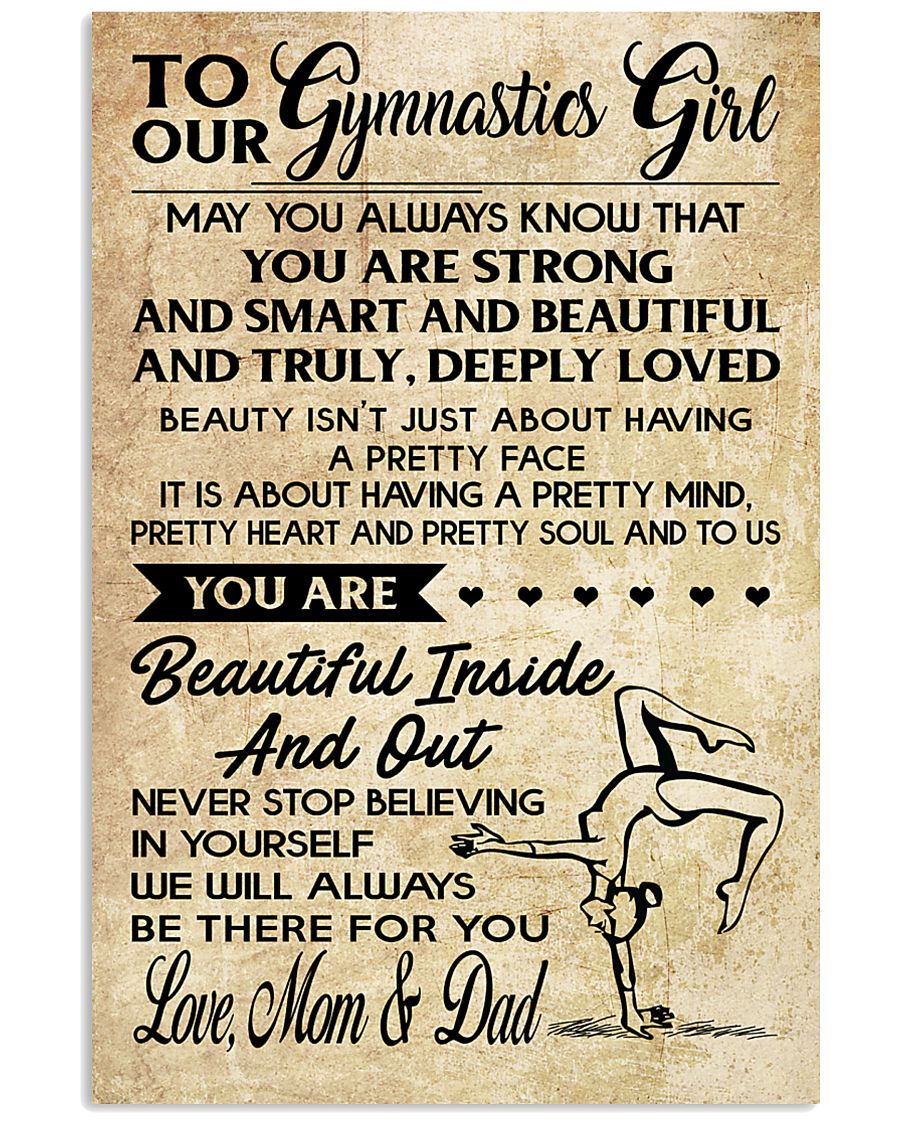 TO OUR Gymnastics Girl
MAY YOU ALWAYS KNOW THAT
YOU ARE STRONG
AND SMART AND BEAUTIFUL
AND TRULY, DEEPLY LOVED
BEAUTY ISN'T JUST ABOUT HAVING
A PRETTY FACE
IT IS ABOUT HAVING A PRETTY MIND,
PRETTY HEART AND PRETTY SOUL AND TO US
YOU ARE
Beautiful Inside
And Out
NEVER STOP BELIEVING
IN YOURSELF
WE WILL ALWAYS
BE THERE FOR YOU
Love, Mom & Dad